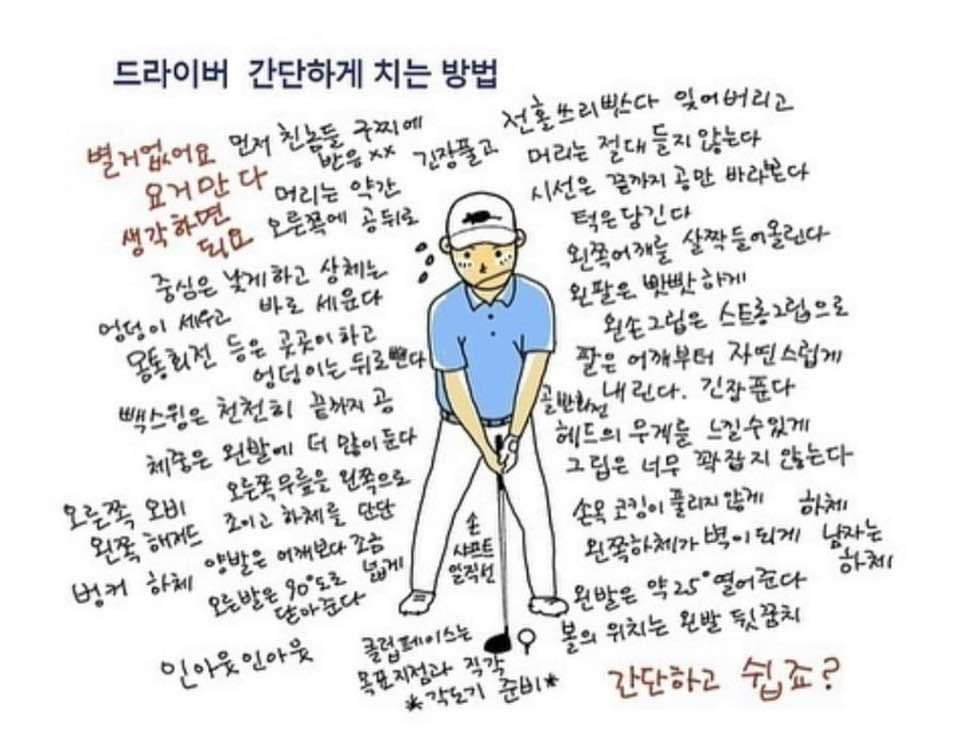 드라이버 간단하게 치는 방법
별거없어요
요거만 다
생각하면
되요
먼저 친놈들 구찌에
반응xx 긴장풀고
머리는 약간
오른쪽에 공뒤로
중심은 낮게하고 상체는
바로 세운다
엉덩이 세우고
몸통회전 등은 곳곳이하고
엉덩이는 뒤로뺀다
빽스윙은 천천히 끝까지 공
체중은 왼발에 더 많이 둔다
오른쪽무릎을 왼쪽으로
조이고 하체를 단단
오른쪽 오비
왼쪽 해저드
벙커 하체
양발은 어깨보다 조금
넓게
오른발은 90°도로
닫아준다
인아웃인아웃
전홀쓰리빳다 잊어버리고
머리는 절대 들지 않는다
시선은 끝까지 공만 바라본다
턱은 담긴다
왼쪽어깨를 살짝들어올린다
왼팔은 빳빳하게
왼손그립은 스트롱그립으로
팔은 어깨부터 자연스럽게
내린다. 긴장푼다
골반회전
헤드의 무게를 느낄수있게
그립은 너무 꽉잡지 않는다
손목코킹이 풀리지않게
하체
왼쪽하체가 벽이되게
남자는
하체
왼발은 약25°열어준다
볼의 위치는 왼발 뒷꿈치
손
샤프트
일직선
클럽페이스는
목표지점과 직각
*각도기 준비*
간단하고 쉽죠?